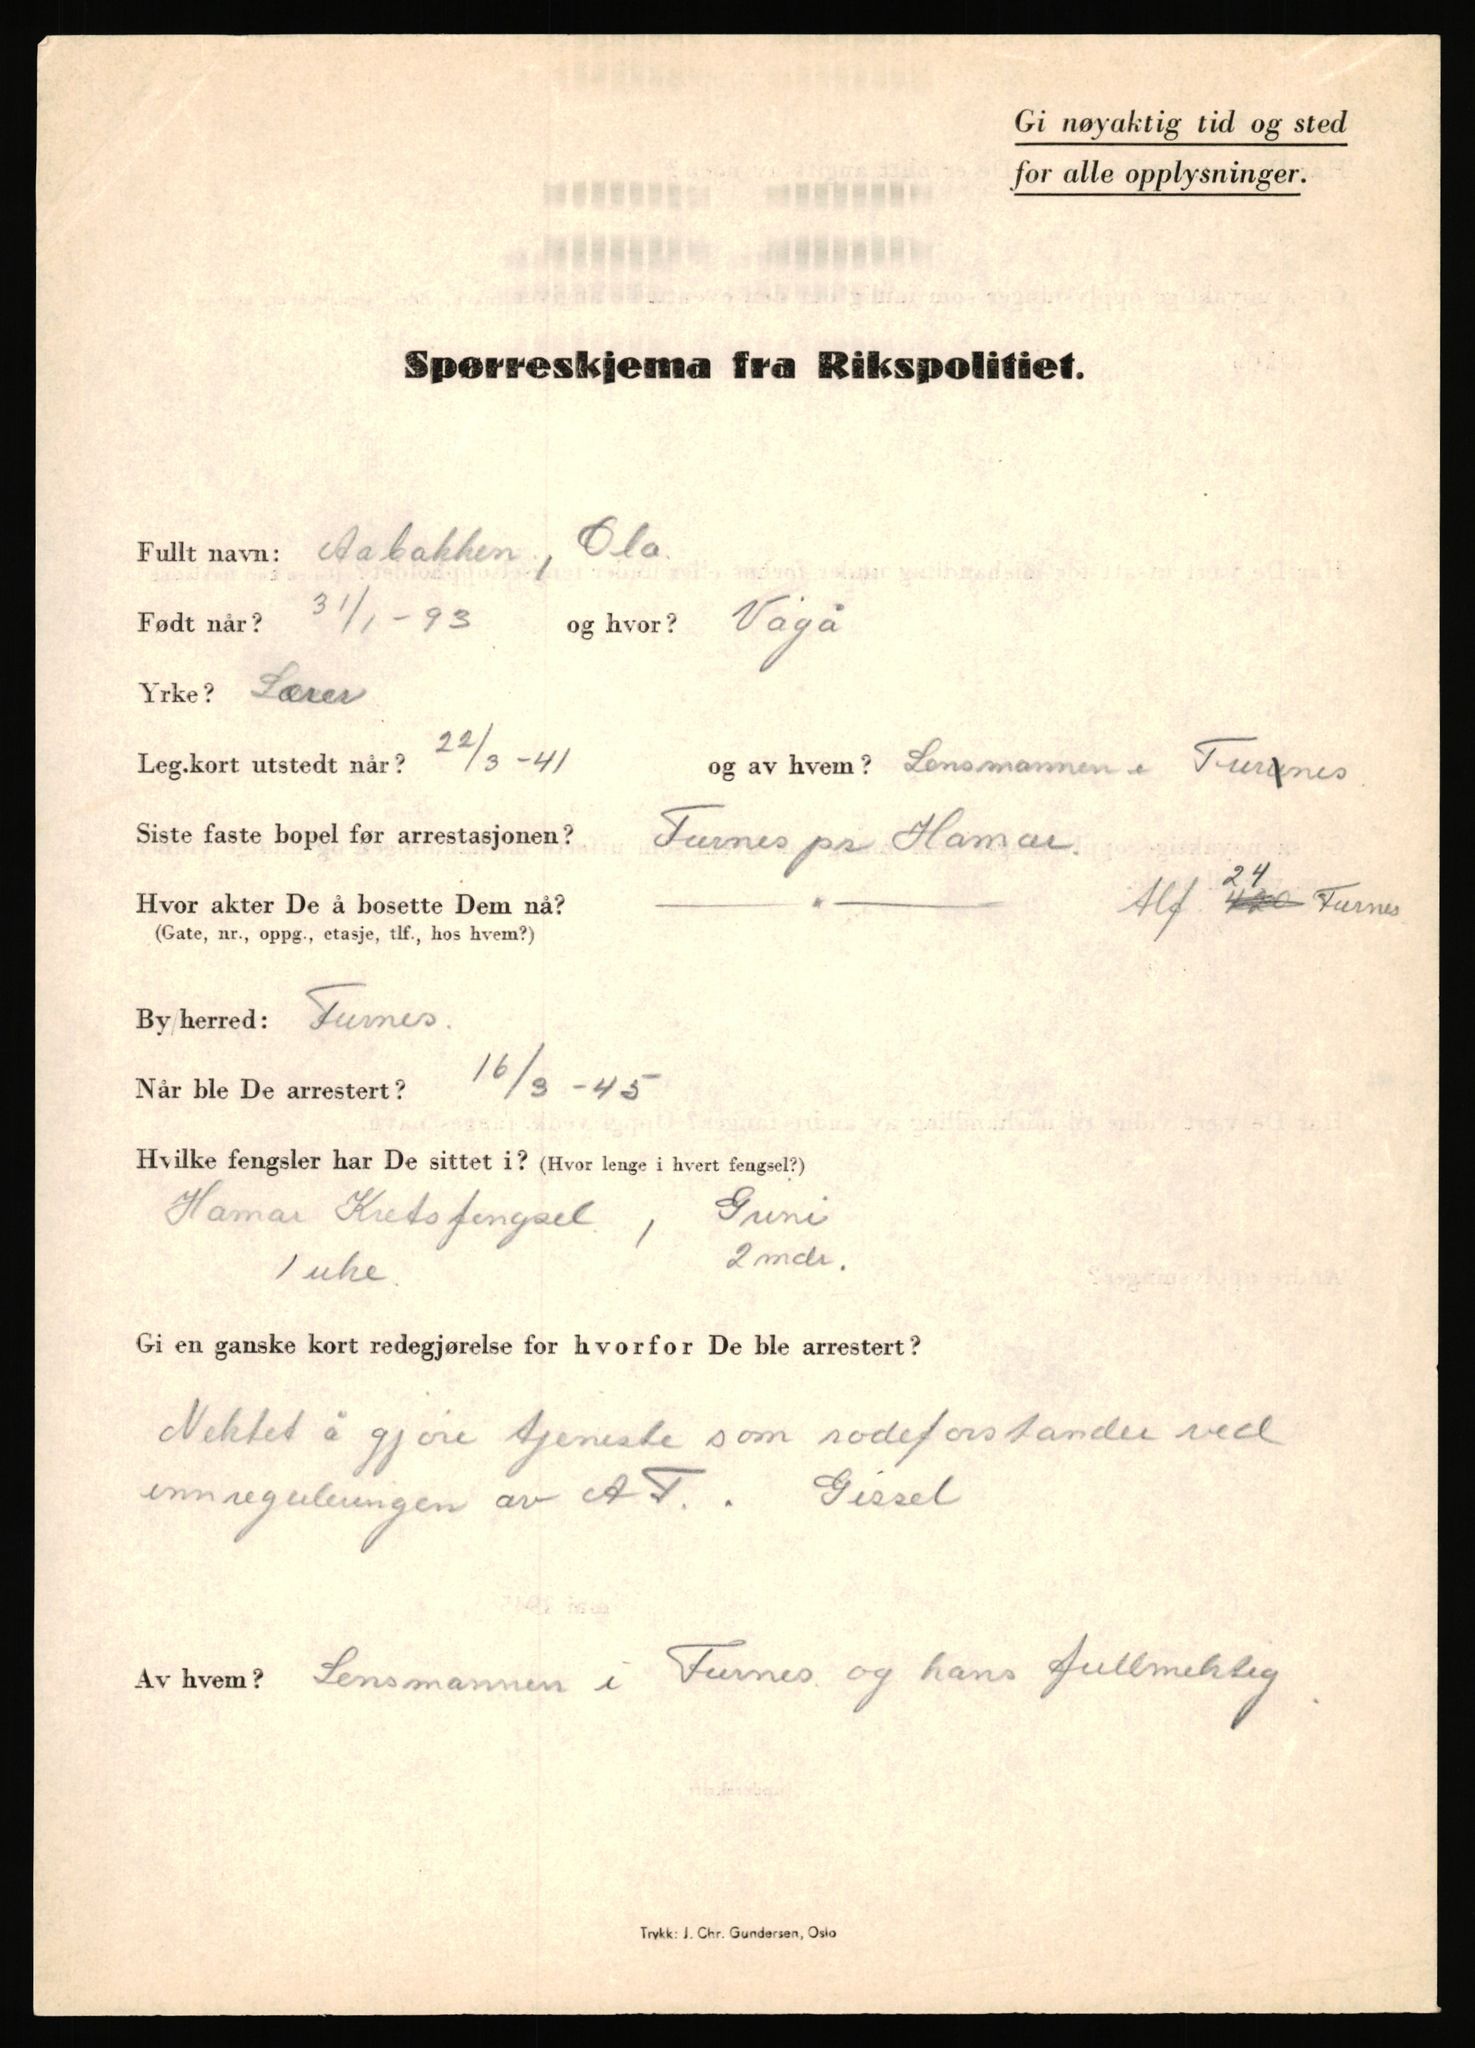 Gi nøyaktig tid og sted
for alle opplysninger.
Spørreskjema fra Rikspolitiet.
Fullt navn: Aabakken, Ola.
Født når? 31/1-93 og hvor? Vågå
Yrke? Lærer
Leg.kort utstedt når? 22/3-41 og av hvem? Lensmannen i Furnes
Siste faste bopel før arrestasjonen? Furnes pr Hamar.
Hvor akter De å bosette Dem nå? —— " —— tlf. 24 Furnes
(Gate, nr., oppg., etasje, tlf., hos hvem?)
By/herred: Furnes.
Når ble De arrestert? 16/3-45
Hvilke fengsler har De sittet i? (Hvor lenge i hvert fengsel?)
Hamar Kretsfengsel, Grini
1 uke. 2 mdr.
Gi en ganske kort redegjørelse for hvorfor De ble arrestert?
Nektet å gjøre tjeneste som rodeforstander ved
innreguleringen av A T.. Gissel
Av hvem? Lensmannen i Furnes og hans fullmektig.
Trykk: J. Chr. Gundersen, Oslo